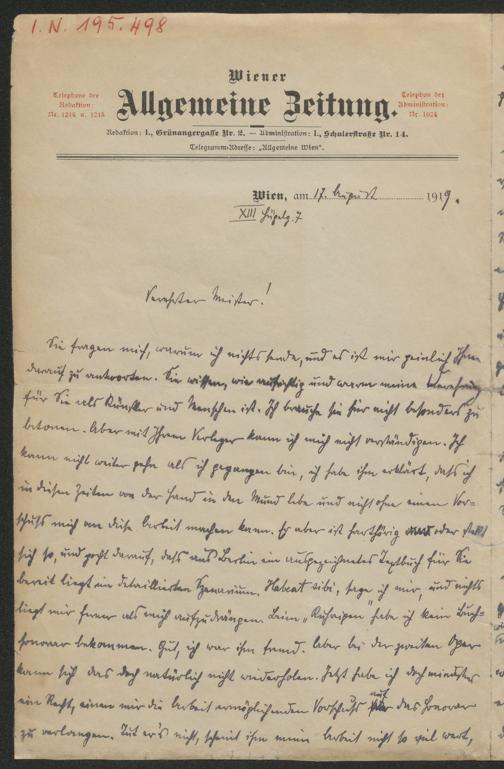 I.N. 195.498
Wiener
Allgemeine Zeitung.
Telephone der
Redaktion:
Nr. 1214 u. 1215
Telephon der
Administration:
Nr. 1024
Redaktion: I., Grünangergasse Nr. 2. — Administration: I., Schulerstraße Nr. 14.
Telegramm-Adresse: „Allgemeine Wien“.
Wien, am 17. August 1919.
XIII 7
Verehrter Meister!
Sie fragen mich, warum ich nichts sende, und es ist mir peinlich Ihnen
darauf zu antworten. Sie wissen, wie aufrichtig und warm meine Verehrung
für Sie als Künstler und Menschen ist. Ich brauche sie hier nicht besonders zu
betonen. Aber mit Ihrem Verleger kann ich mich nicht verständigen. Ich
kann nicht weiter gehn als ich gegangen bin, ich habe ihm erklärt, dass ich
in diesen Zeiten von der Hand in den Mund lebe und nicht ohne einen Vor-
schuss mich an diese Arbeit machen kann. Er aber ist harthörig oder stellt
sich so, und pocht darauf, dass aus Berlin ein ausgezeichnetes Textbuch für Sie
bereit liegt im detaillierten Szenarium. Habeat sibi, sage ich mir, und nichts
liegt mir ferner als mich aufzudrängen. Beim „Kuhreigen“ habe ich kein Buch-
honorar bekommen. Gut, ich war ihm fremd. Aber bei der zweiten Oper
kann sich das doch natürlich nicht wiederholen. Jetzt habe ich doch mindestens
ein Recht, einen mir die Arbeit ermöglichenden Vorschuss auf das Honorar
zu verlangen. Tut er's nicht, scheint ihm meine Arbeit nicht so viel wert,